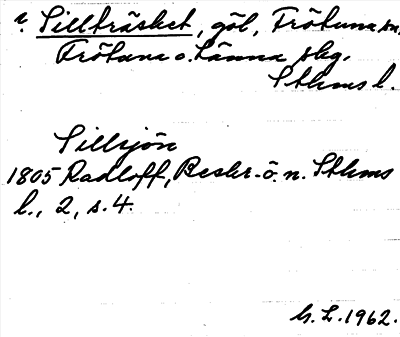 Sillträsket, göl, Frötuna sn,
Frötuna o. Länna skg.
Sthms l.
Sillsjön
1805 Radloff, Beskr. ö. n. Sthms
l., 2, s. 4.
G. L. 1962.